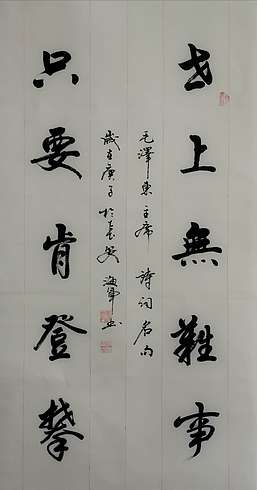 世上無難事
毛澤東主席 詩词名句
歲在庚子於長安 海軍书
只要肯登攀